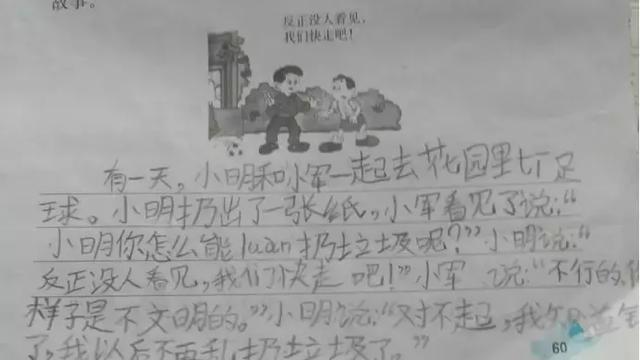 故事。
反正没人看见,
我们快走吧!
有一天,小明和小军一起去花园里丁足
球。小明扔出了一张纸,小军看见了说:“
小明你怎么能luan扔垃圾呢?”小明说:“
反正没人看见,我们快走吧!”小军说:“不行的,
样子是不文明的。”小明说:“对不起,我知道错
了,我以后不再乱扔垃圾了。”
60